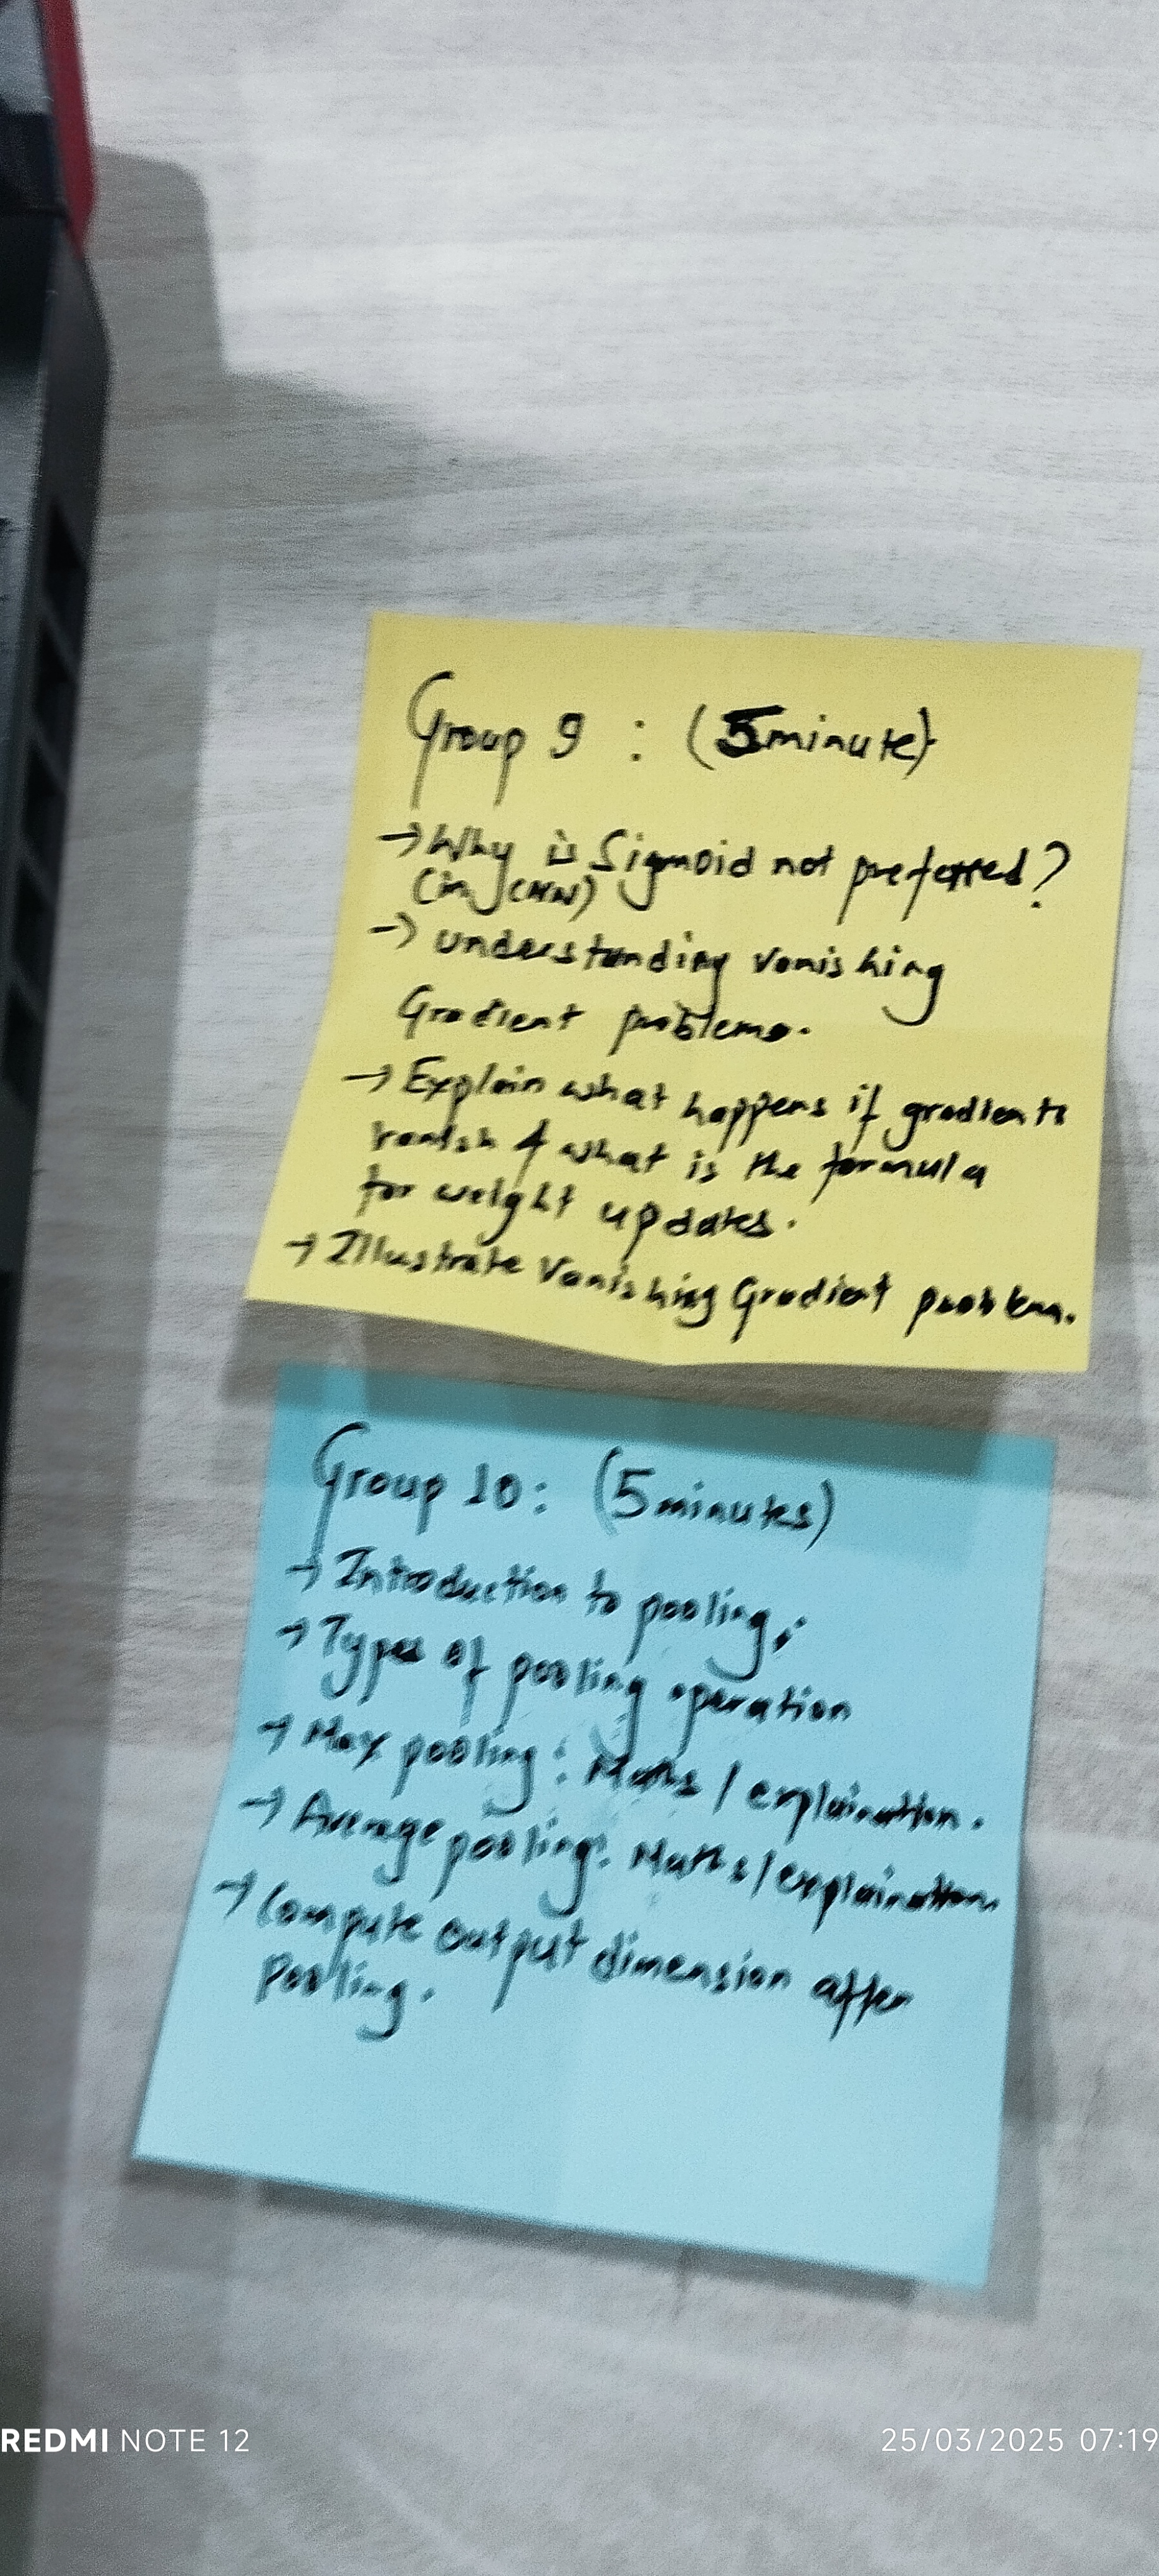 Group 9 : (5minute)
→ Why is Sigmoid not preferred?
(in CNN)
→ understanding vanishing
Gradient problems.
→ Explain what happens if gradients
vanish & what is the formula
for weight updates.
→ Illustrate Vanishing Gradient problem.
Group 10: (5minutes)
→ Introduction to pooling;
→ Types of pooling operation
→ Max pooling: Maths / explaination.
→ Average pooling: Maths/explaination.
→ Compute output dimension after
Pooling.
REDMI NOTE 12
25/03/2025 07:19